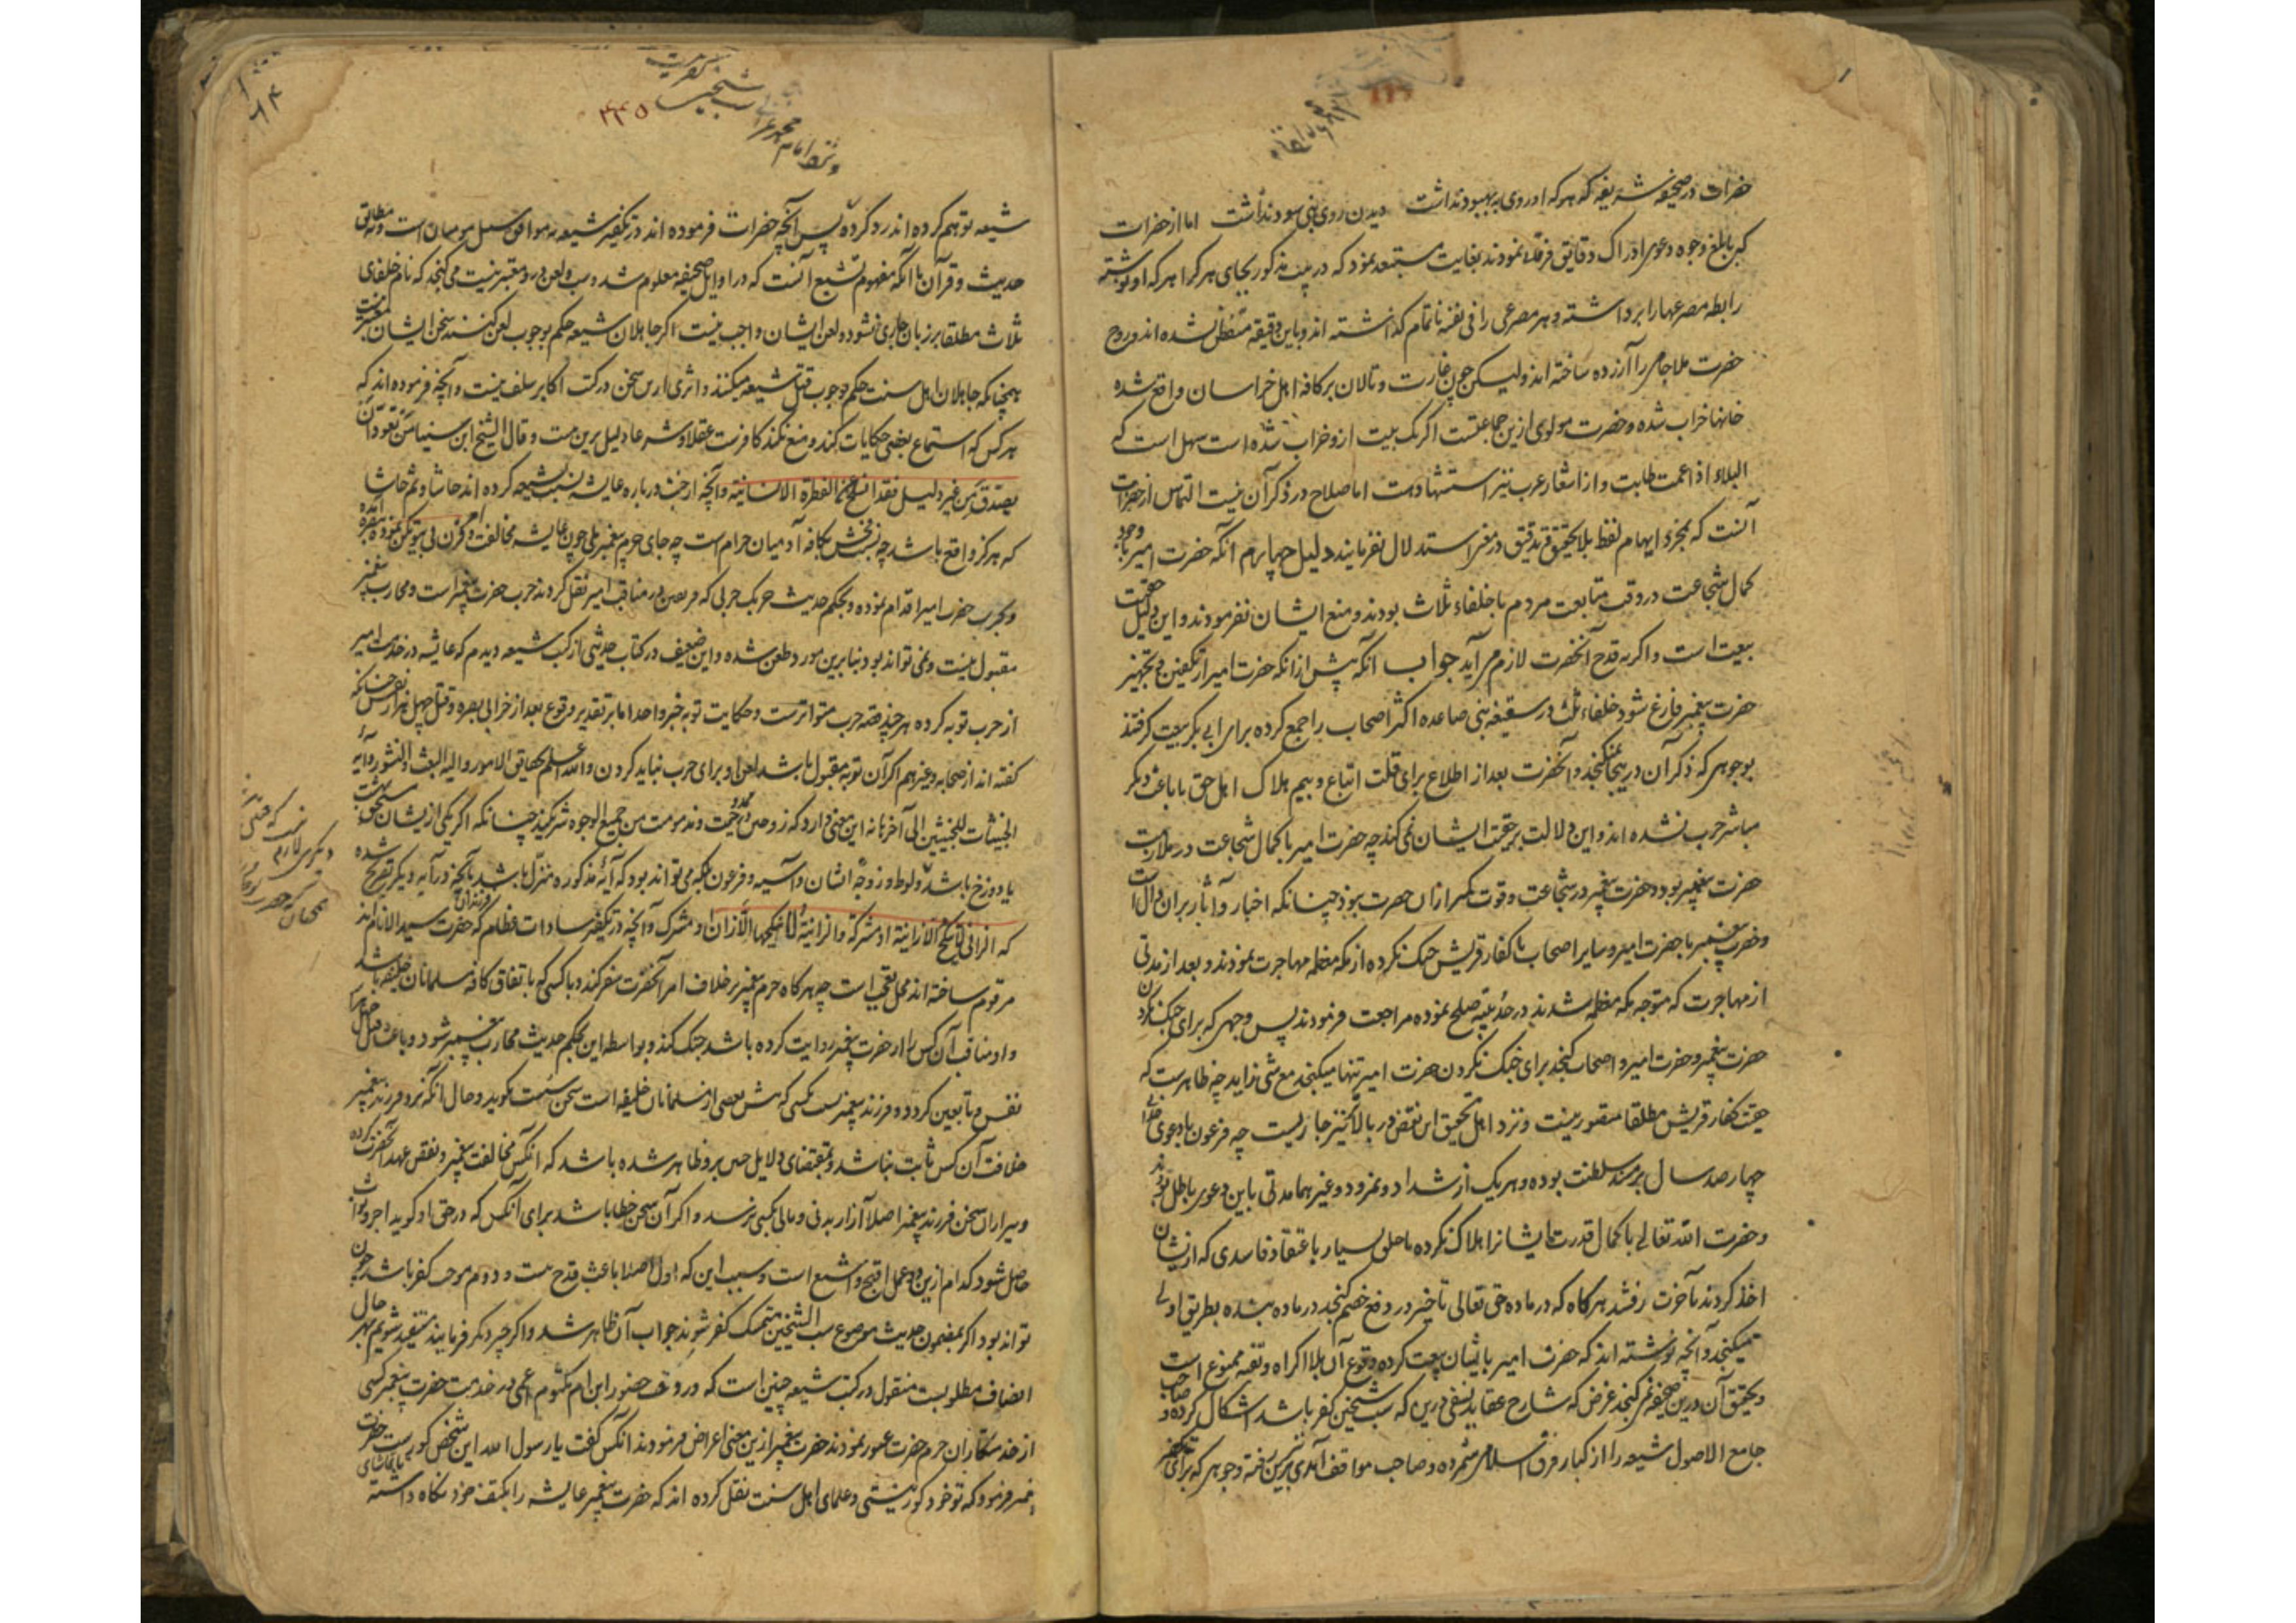 حضرات در صحیفه شریفه که هر که او روی به بهبود نداشت دیدن روی نبی سود نداشت اما از حضرات
که بابلغ وجوه دعوی ادراک دقایق فرقان نمودند بغایت مستبعد نمود که در بیت مذکور بجای هر کرا هر که او نوشته
رابطه مصرعها را برداشته و هر مصرعی را فی نفسه ناتمام گذاشته اند و باین دقیقه متفطن نشده اند و روح
حضرت ملا جامی را آزرده ساخته اند ولیکن چون غارت و تالان بر کافه اهل خراسان واقع شده
خانها خراب شده و حضرت مولوی ازین جماعتست اگر یک بیت ازو خراب شده است سهل است که
البلاء اذا عمت طابت و از اشعار عرب نیز استشهادست اما صلاح در ذکر آن نیست التماس از حضرات
آنست که بمجرد ایهام لفظ بلا تحقیق و تدقیق در معنی استدلال نفرمایند دلیل چهارم آنکه حضرت امیر با وجود
کمال شجاعت در وقت متابعت مردم با خلفاء ثلاث بودند و منع ایشان نفرمودند و این دلیل حقیت
بیعت است و اگر نه قدح آنحضرت لازم می آید جواب آنکه پیش از آنکه حضرت امیر از تکفین و تجهیز
حضرت پیغمبر فارغ شود خلفاء ثلث در سقیفه بنی صاعده اکثر اصحاب را جمع کرده برای ابی بکر بیعت گرفتند
بوجوهی که ذکر آن درینجا نمیگنجد و آنحضرت بعد از اطلاع برای قلت اتباع و بیم هلاک اهل حق یا باعث دیگر
مباشر حرب نشده اند و این دلالت بر حقیت ایشان نمی کند چه حضرت امیر با کمال شجاعت در ملازمت
حضرت پیغمبر بود و حضرت پیغمبر در شجاعت و قوت کمتر از آن حضرت نبود چنانکه اخبار و آثار بر آن دال است
و حضرت پیغمبر با حضرت امیر و سایر اصحاب با کفار قریش جنگ نکرده از مکه معظمه مهاجرت نمودند و بعد از مدتی
از مهاجرت که متوجه مکه معظمه شدند در حدیبیه صلح نموده مراجعت فرمودند پس وجهی که برای جنگ نکردن
حضرت پیغمبر و حضرت امیر و اصحاب گنجد برای جنگ نکردن حضرت امیر تنها میگنجد مع شی زاید چه ظاهرست که
حقیت کفار قریش مطلقا متصور نیست و نزد اهل تحقیق این نقض در بالاتر نیز جاریست چه فرعون با دعوی خدایی
چهار صد سال بر مسند سلطنت بوده و هر یک از شداد و نمرود و غیرهما مدتی باین دعوی باطل بودند
و حضرت الله تعالی با کمال قدرت ایشانرا هلاک نکرده تا خلق بسیار با عتقاد فاسدی که ازیشان
اخذ کردند بآخرت رفتند هر گاه که در ماده حق تعالی تأخیر در دفع خصم گنجد در ماده بنده بطریق اولی
میگنجد و آنچه نوشته اند که حضرت امیر بایشان بیعت کرده وقوع آن بلا اکراه و تقیه ممنوع است
و تحقیق آن درین صحیفه نمی گنجد غرض که شارح عقاید نسفی درین که سب شیخین کفر باشد اشکال کرده و صاحب
جامع الاصول شیعه را از کبار فرق اسلام شمرده و صاحب مواقف آمدی برین رفته و وجوهی که برای تکفیر
شیعه توهم کرده اند رد کرده پس آنچه حضرات فرموده اند در تکفیر شیعه نه موافق سبیل مومنان است و نه مطابق
حدیث و قرآن با آنکه مفهوم تشیع آنست که در اوایل صحیفه معلوم شد و سب و لعن درو معتبر نیست می گنجد که نام خلفای
ثلاث مطلقا بر زبان جاری نشود و لعن ایشان واجب نیست اگر جاهلان شیعه حکم بوجوب لعن کنند سخن ایشان معتبر نیست
همچنانکه جاهلان اهل سنت حکم بوجوب قتل شیعه میکنند و اثری ازین سخن در کتب اکابر سلف نیست و آنچه فرموده اند که
هر کس که استماع بعضی حکایات کند و منع نکند کافرست عقلا و شرعا دلیل برین نیست و قال الشیخ ابن سینا من تعود ان
یصدق من غیر دلیل فقد انسلخ عن الفطرة الانسانیة و آنچه از خبث درباره عایشه نسبت بشیعه کرده اند حاشا و ثم حاشا
که هرگز واقع باشد چه نسبت فحش بکافه آدمیان حرام است چه جای حرم پیغمبر بلی چون عایشه مخالفت امر وقرن فی بیوتکن نموده ببصره آمده
و بحرب حضرت امیر اقدام نموده و بحکم حدیث حربک حربی که فریقین در مناقب امیر نقل کردند حرب حضرت پیغمبر است و محارب پیغمبر
مقبول نیست و نمی تواند بود بنابرین مورد طعن شده و این ضعیف در کتاب حدیثی از کتب شیعه دیدم که عایشه در خدمت امیر
از حرب توبه کرده هر چند قصه حرب متواترست و حکایت توبه خبر واحد اما بر تقدیر وقوع بعد از خرابی بصره و قتل چهل هزار نفس چنانکه
گفته اند از صحابه و غیرهم اگر آن توبه مقبول باشد لعن او برای حرب نباید کردن و الله اعلم بحقایق الامور و الیه البعث و النشور و آیه
الخبیثات للخبیثین الی آخرها نه این معنی دارد که زوجین در مدح و مذمت من جمیع الوجوه شریکند چنانکه اگر یکی ازیشان مستحق بهشت
یا دوزخ باشد و لوط و زوجه اشان و آسیه و فرعون بلکه می تواند بود که آیه مذکوره منزل باشد بآنچه در آیه دیگر تصریح شده
که الزانی لا ینکح الا زانیة او مشرکة و الزانیة لا ینکحها الا زان او مشرک و آنچه در تکفیر سادات عظام که فرزندان حضرت سید الانام اند
مرقوم ساخته اند محل تعجب است چه هر گاه حرم پیغمبر بر خلاف امر آنحضرت سفر کند و با کسی که باتفاق کافه مسلمانان خلیفه باشد
و او مناقب آن کس را از حضرت پیغمبر روایت کرده باشد جنگ کند و بواسطه این بحکم حدیث محارب پیغمبر شود و باعث قتل چهل هزار
نفس و تابعین گردد و فرزند پیغمبر نسبت بکسی که پیش بعضی از مسلمانان خلیفه است سخن سخت گوید و حال آنکه نزد فرزند پیغمبر
خلافت آن کس ثابت نباشد و بمقتضای دلایل چنین برو ظاهر شده باشد که آنکس مخالفت پیغمبر و نقض عهد آنحضرت کرده
و میرا ازان سخن فرزند پیغمبر اصلا آزار بدنی و مالی بکسی نرسد و اگر آن سخن خطا باشد برای آنکس که در حق او گوید اجر و ثواب
حاصل شود کدام ازین دو عمل اقبح و اشنع است و سبب این که اول اصلا باعث قدح نیست و دوم موجب کفر باشد چون
تواند بود اگر بمضمون حدیث موضوع سب الشیخین متمسک کفر شوند جواب آن ظاهر شد و اگر چیز دیگر فرمایند مستفید شویم بهر حال
انصاف مطلوبست منقول در کتب شیعه چنین است که در وقت حضور ابن ام مکتوم اعمی در خدمت حضرت پیغمبر کسی
از خدمتکاران حرم حضرت عبور نمودند حضرت پیغمبر ازین معنی اعراض فرمودند آنکس گفت یا رسول الله این شخص کورست حضرت
پیغمبر فرمود که تو خود کور نیستی و علمای اهل سنت نقل کرده اند که حضرت پیغمبر عایشه را بکتف خود نگاه داشته